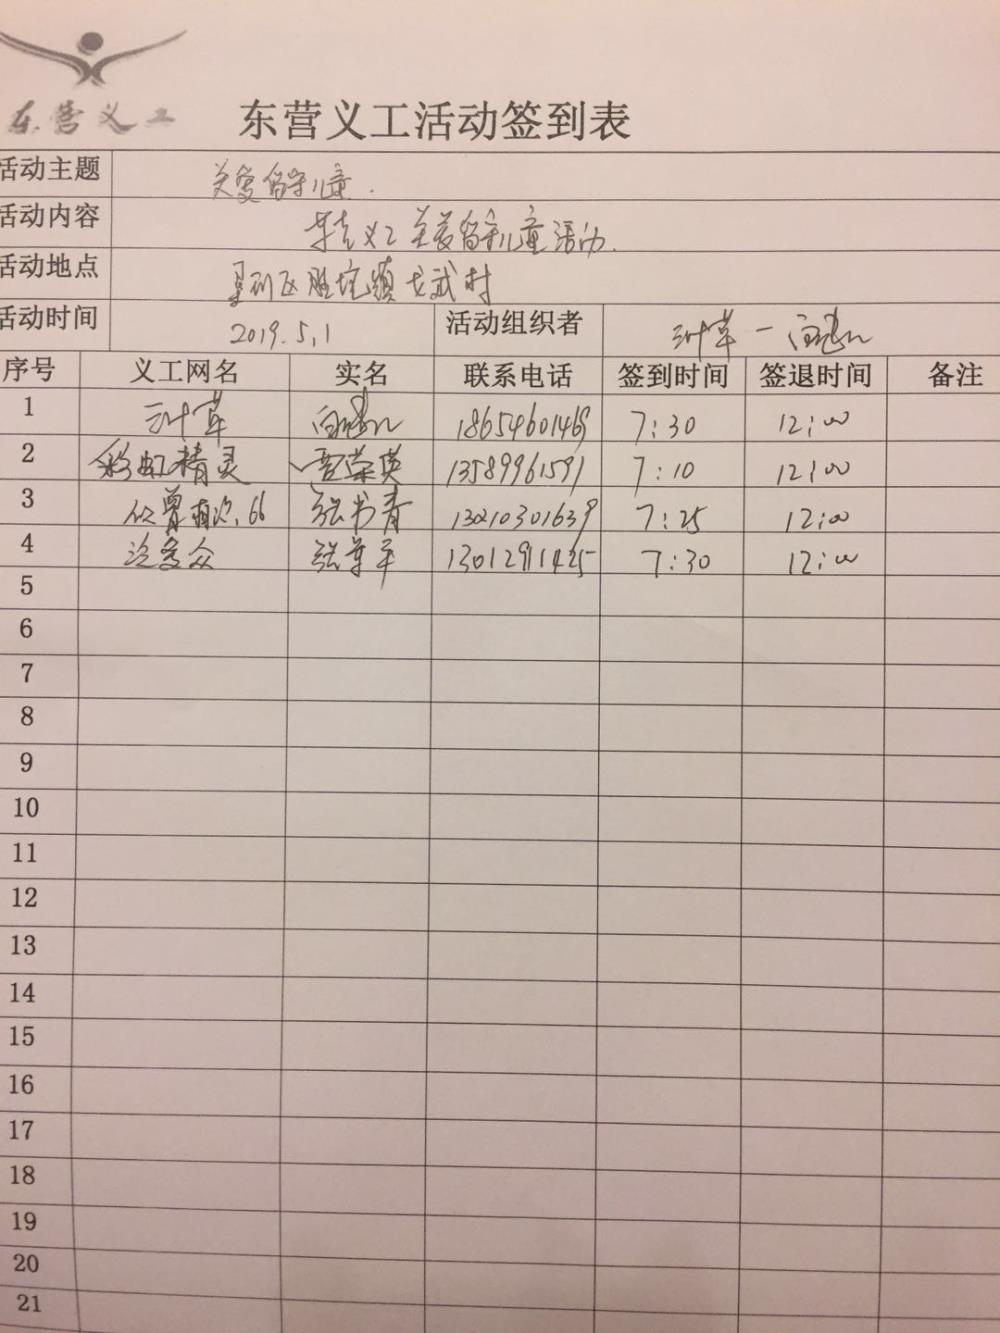 东营义工
东营义工活动签到表
活动主题 关爱留守儿童.
活动内容 义工关爱留守儿童活动.
活动地点 垦利区胜坨镇 武村
活动时间 2019.5.1 活动组织者 叶草一白
序号 义工网名 实名 联系电话 签到时间 签退时间 备注
1 叶草 白 18654601469 7:30 12:00
2 彩虹精灵 荣英 13589961591 7:10 12:00
3 张书青 13210301639 7:25 12:00
4 张 13012911425 7:30 12:00
5
6
7
8
9
10
11
12
13
14
15
16
17
18
19
20
21